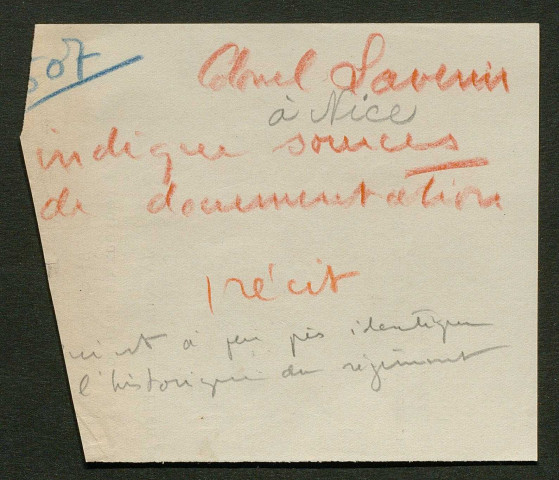 507
Colonel Lavenir
à Nice
indique sources
de documentation
1 récit
qui est à peu près identique
l'historique du régiment